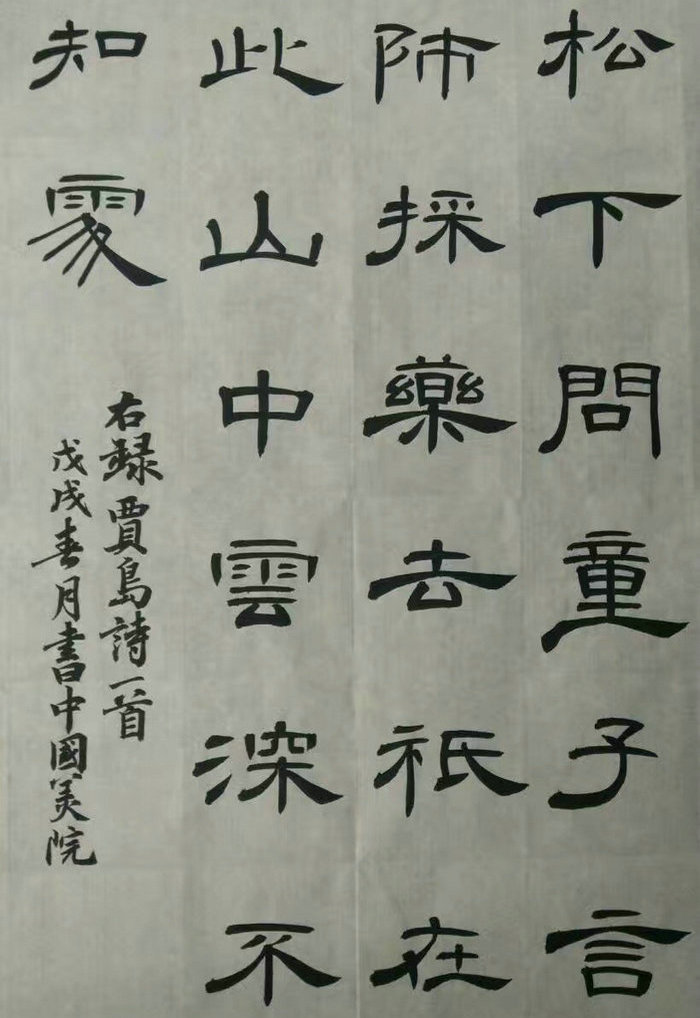 松下問童子言
師採藥去祇在
此山中雲深不
知處
右録賈島詩一首
戊戌春月書中國美院